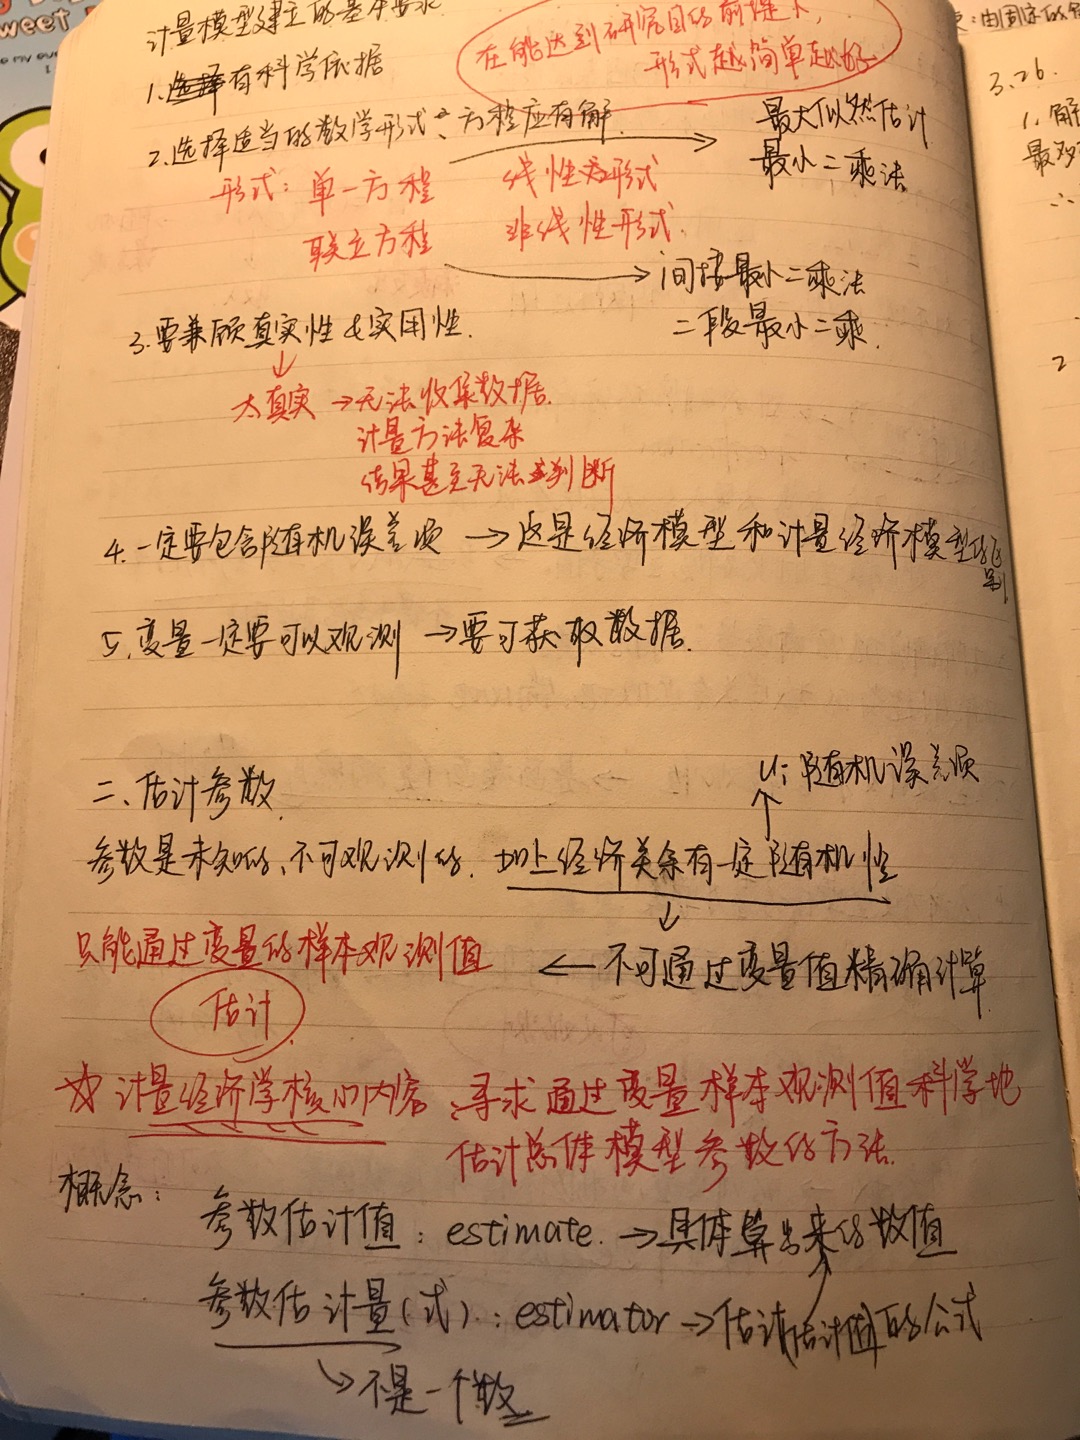 计量模型建立的基本要求
在能达到研究目的前提下,
形式越简单越好
1. 有科学依据
2. 选择适当的数学形式、方程应有解
最大似然估计
最小二乘法
形式: 单一方程 线性形式
联立方程 非线性形式
间接最小二乘法
二段最小二乘.
3. 要兼顾真实性&实用性.
太真实→无法收集数据
计量方法复杂
结果甚至无法判断
4. 一定要包含随机误差项 →这是经济模型和计量经济模型的区别
5. 变量一定要可以观测 →要可获取数据.
二、估计参数
ui: 随机误差项
参数是未知的、不可观测的. 加上经济关系有一定随机性
只能通过变量的样本观测值 ← 不可通过变量值精确计算
估计
☆ 计量经济学核心内容、寻求通过变量样本观测值科学地
估计总体模型参数的方法.
概念:
参数估计值: estimate. →具体算出来的数值
参数估计量(式): estimator →估计(估计值)的公式
↳不是一个数
3.26.
1. 解
最
∴
2
weet